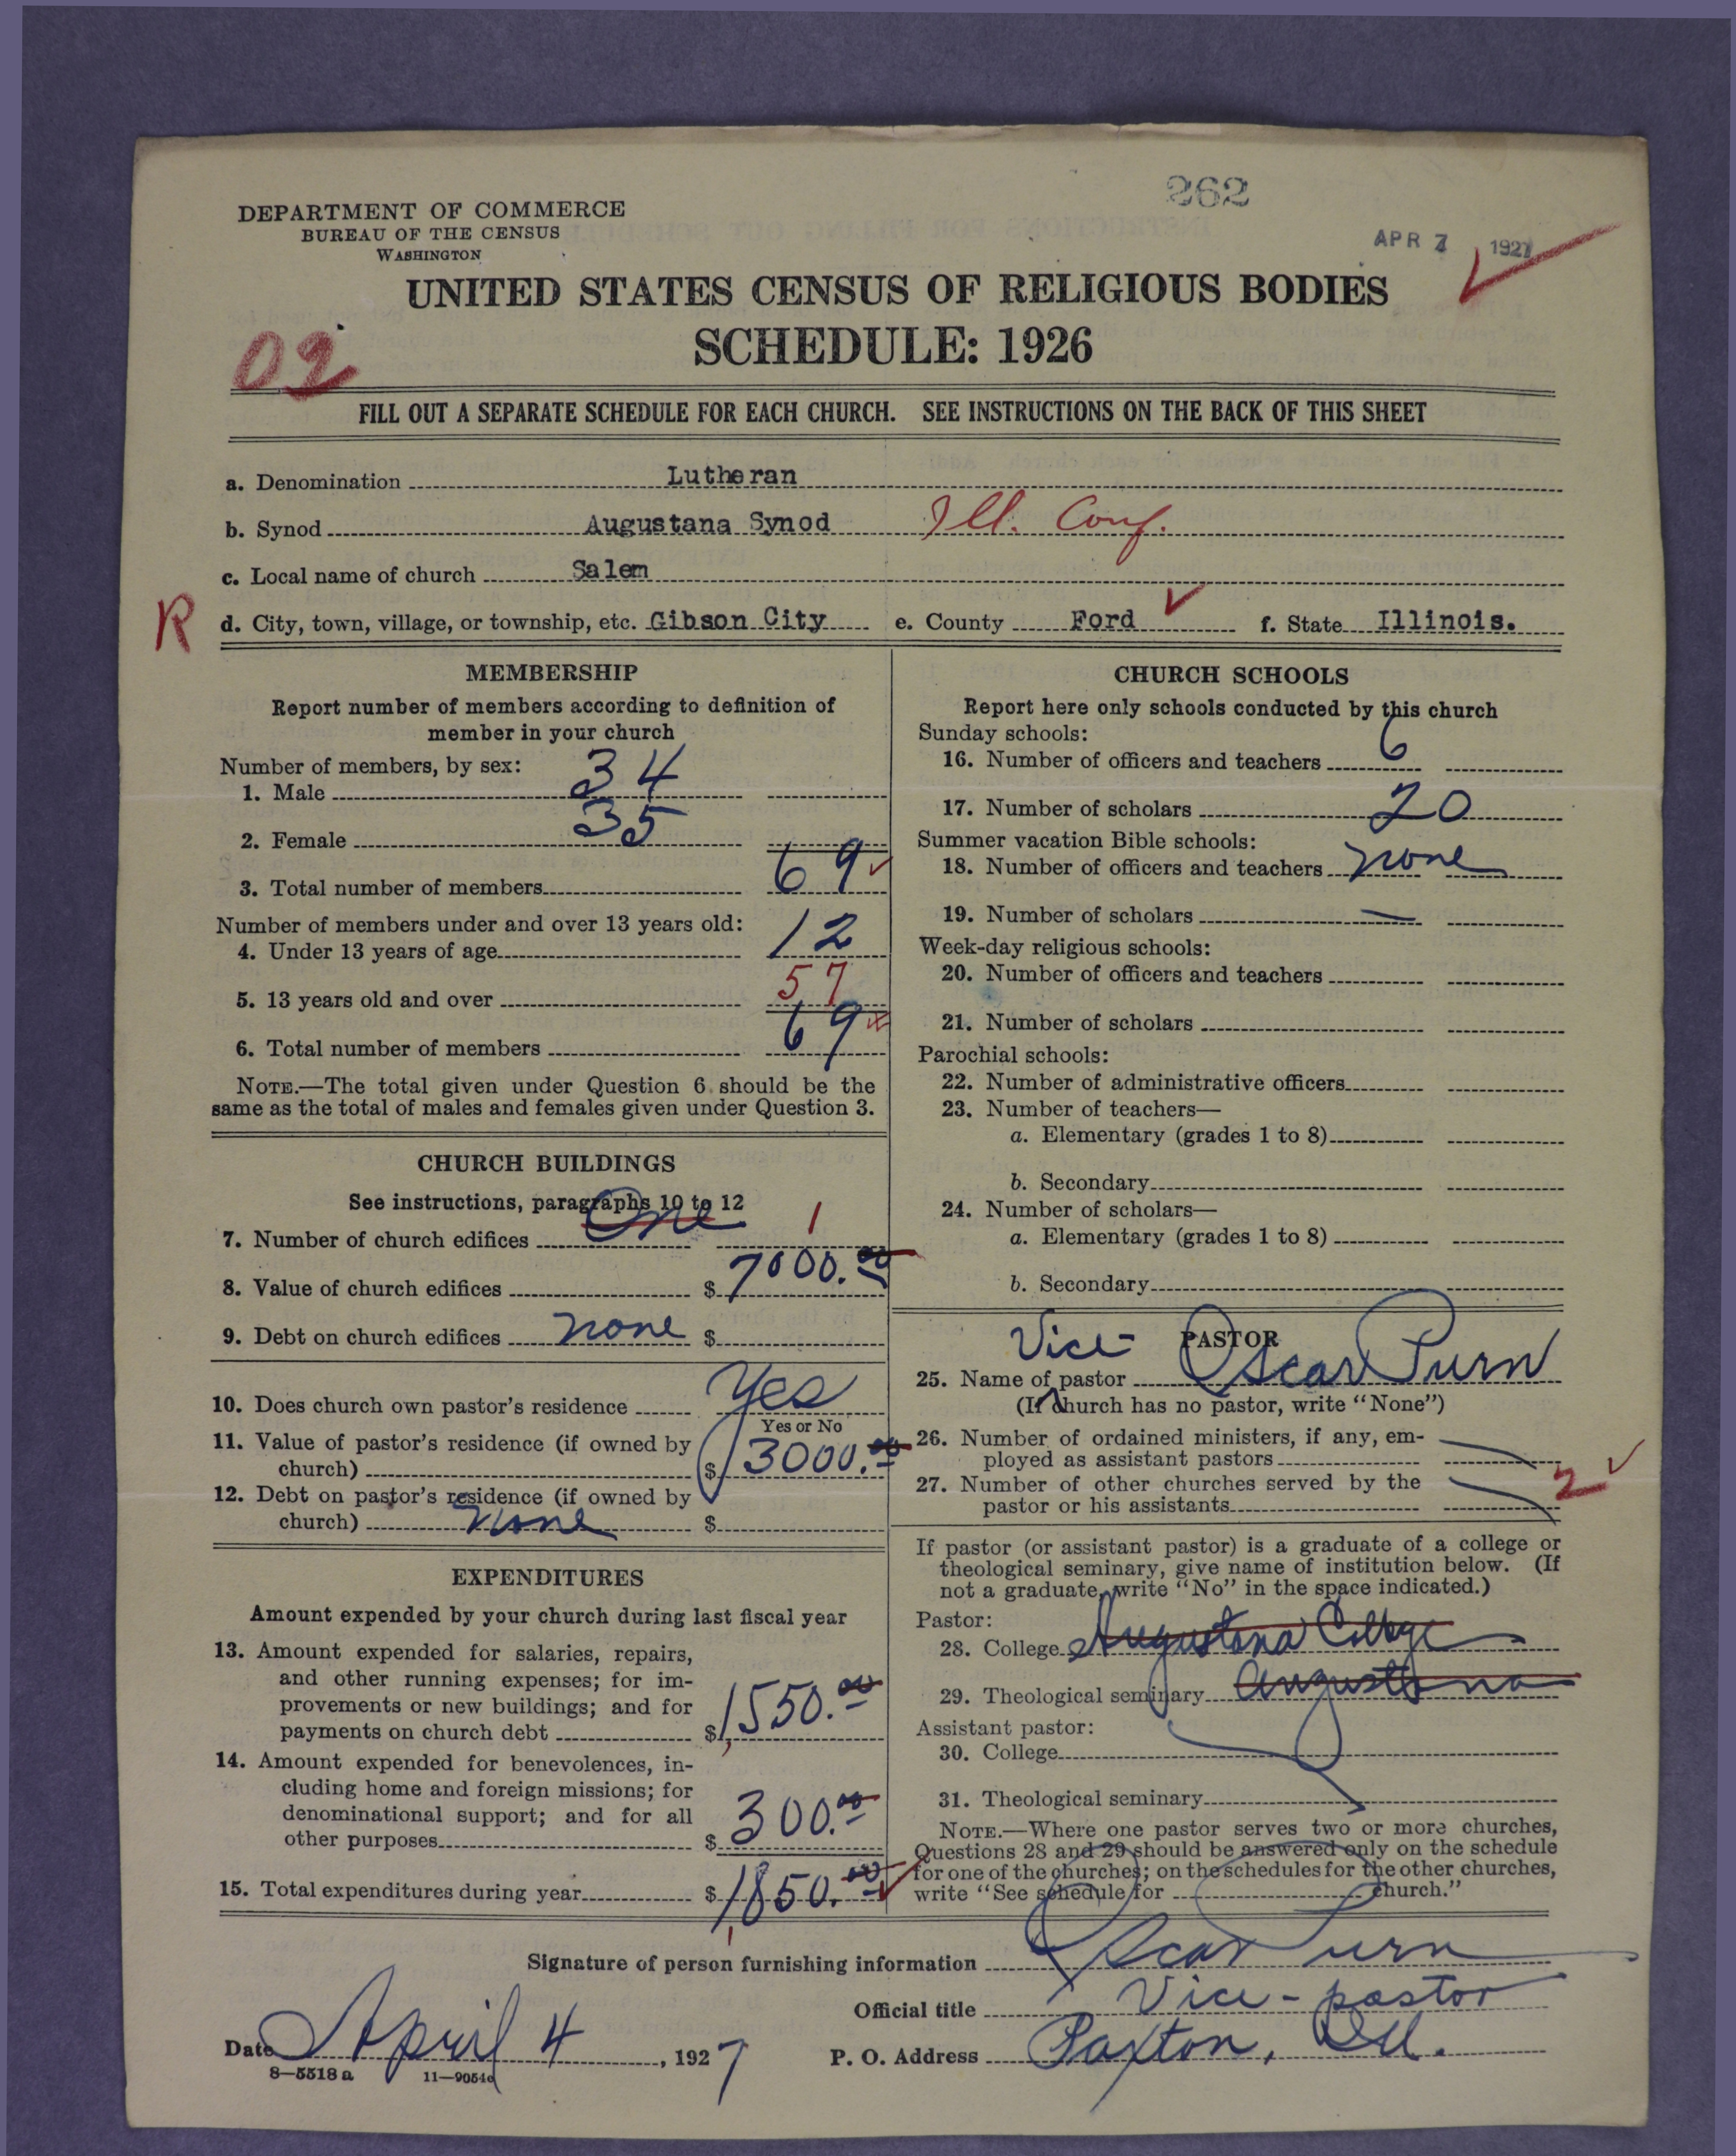 262
DEPARTMENT OF COMMERCE
BUREAU OF THE CENSUS
WASHINGTON
APR 7 1927
UNITED STATES CENSUS OF RELIGIOUS BODIES
SCHEDULE: 1926
02
FILL OUT A SEPARATE SCHEDULE FOR EACH CHURCH. SEE INSTRUCTIONS ON THE BACK OF THIS SHEET
a. Denomination Lutheran
b. Synod Augustana Synod Ill. Conf.
c. Local name of church Salem
R d. City, town, village, or township, etc. Gibson City e. County Ford f. State Illinois.
MEMBERSHIP
Report number of members according to definition of
member in your church
Number of members, by sex:
1. Male 34
2. Female 35
3. Total number of members 69
Number of members under and over 13 years old:
4. Under 13 years of age 12
5. 13 years old and over 57
6. Total number of members 69
NOTE.—The total given under Question 6 should be the
same as the total of males and females given under Question 3.
CHURCH BUILDINGS
See instructions, paragraphs 10 to 12
7. Number of church edifices One 1
8. Value of church edifices $ 7000.00
9. Debt on church edifices none $
10. Does church own pastor's residence Yes
Yes or No
11. Value of pastor's residence (if owned by
church) $ 3000.00
12. Debt on pastor's residence (if owned by
church) none $
EXPENDITURES
Amount expended by your church during last fiscal year
13. Amount expended for salaries, repairs,
and other running expenses; for im-
provements or new buildings; and for
payments on church debt $ 1550.00
14. Amount expended for benevolences, in-
cluding home and foreign missions; for
denominational support; and for all
other purposes $ 300.00
15. Total expenditures during year $ 1850.00
CHURCH SCHOOLS
Report here only schools conducted by this church
Sunday schools:
16. Number of officers and teachers 6
17. Number of scholars 20
Summer vacation Bible schools:
18. Number of officers and teachers none
19. Number of scholars —
Week-day religious schools:
20. Number of officers and teachers
21. Number of scholars
Parochial schools:
22. Number of administrative officers
23. Number of teachers—
a. Elementary (grades 1 to 8)
b. Secondary
24. Number of scholars—
a. Elementary (grades 1 to 8)
b. Secondary
Vice- PASTOR
25. Name of pastor Oscar Purn
(If church has no pastor, write "None")
26. Number of ordained ministers, if any, em-
ployed as assistant pastors
27. Number of other churches served by the
pastor or his assistants 2
If pastor (or assistant pastor) is a graduate of a college or
theological seminary, give name of institution below. (If
not a graduate, write "No" in the space indicated.)
Pastor:
28. College Augustana College
29. Theological seminary Augustana
Assistant pastor:
30. College
31. Theological seminary
NOTE.—Where one pastor serves two or more churches,
Questions 28 and 29 should be answered only on the schedule
for one of the churches; on the schedules for the other churches,
write "See schedule for church."
Signature of person furnishing information Oscar Purn
Official title Vice-pastor
Date April 4, 1927 P. O. Address Paxton, Ill.
8—5518 a 11—9054c